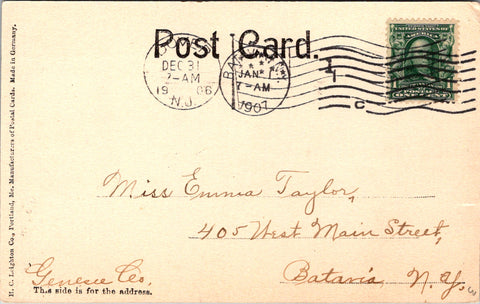 Post Card.
DEC 31
7-AM
1906
N.J.
JAN 1
7-AM
1907
C
UNITED STATES OF
AMERICA
ONE
Miss Emma Taylor,
405 West Main Street,
Batavia N.Y.
Genesee Co.
This side is for the address.
H. C. Leighton Co., Portland, Me. Manufacturers of Postal Cards. Made in Germany.